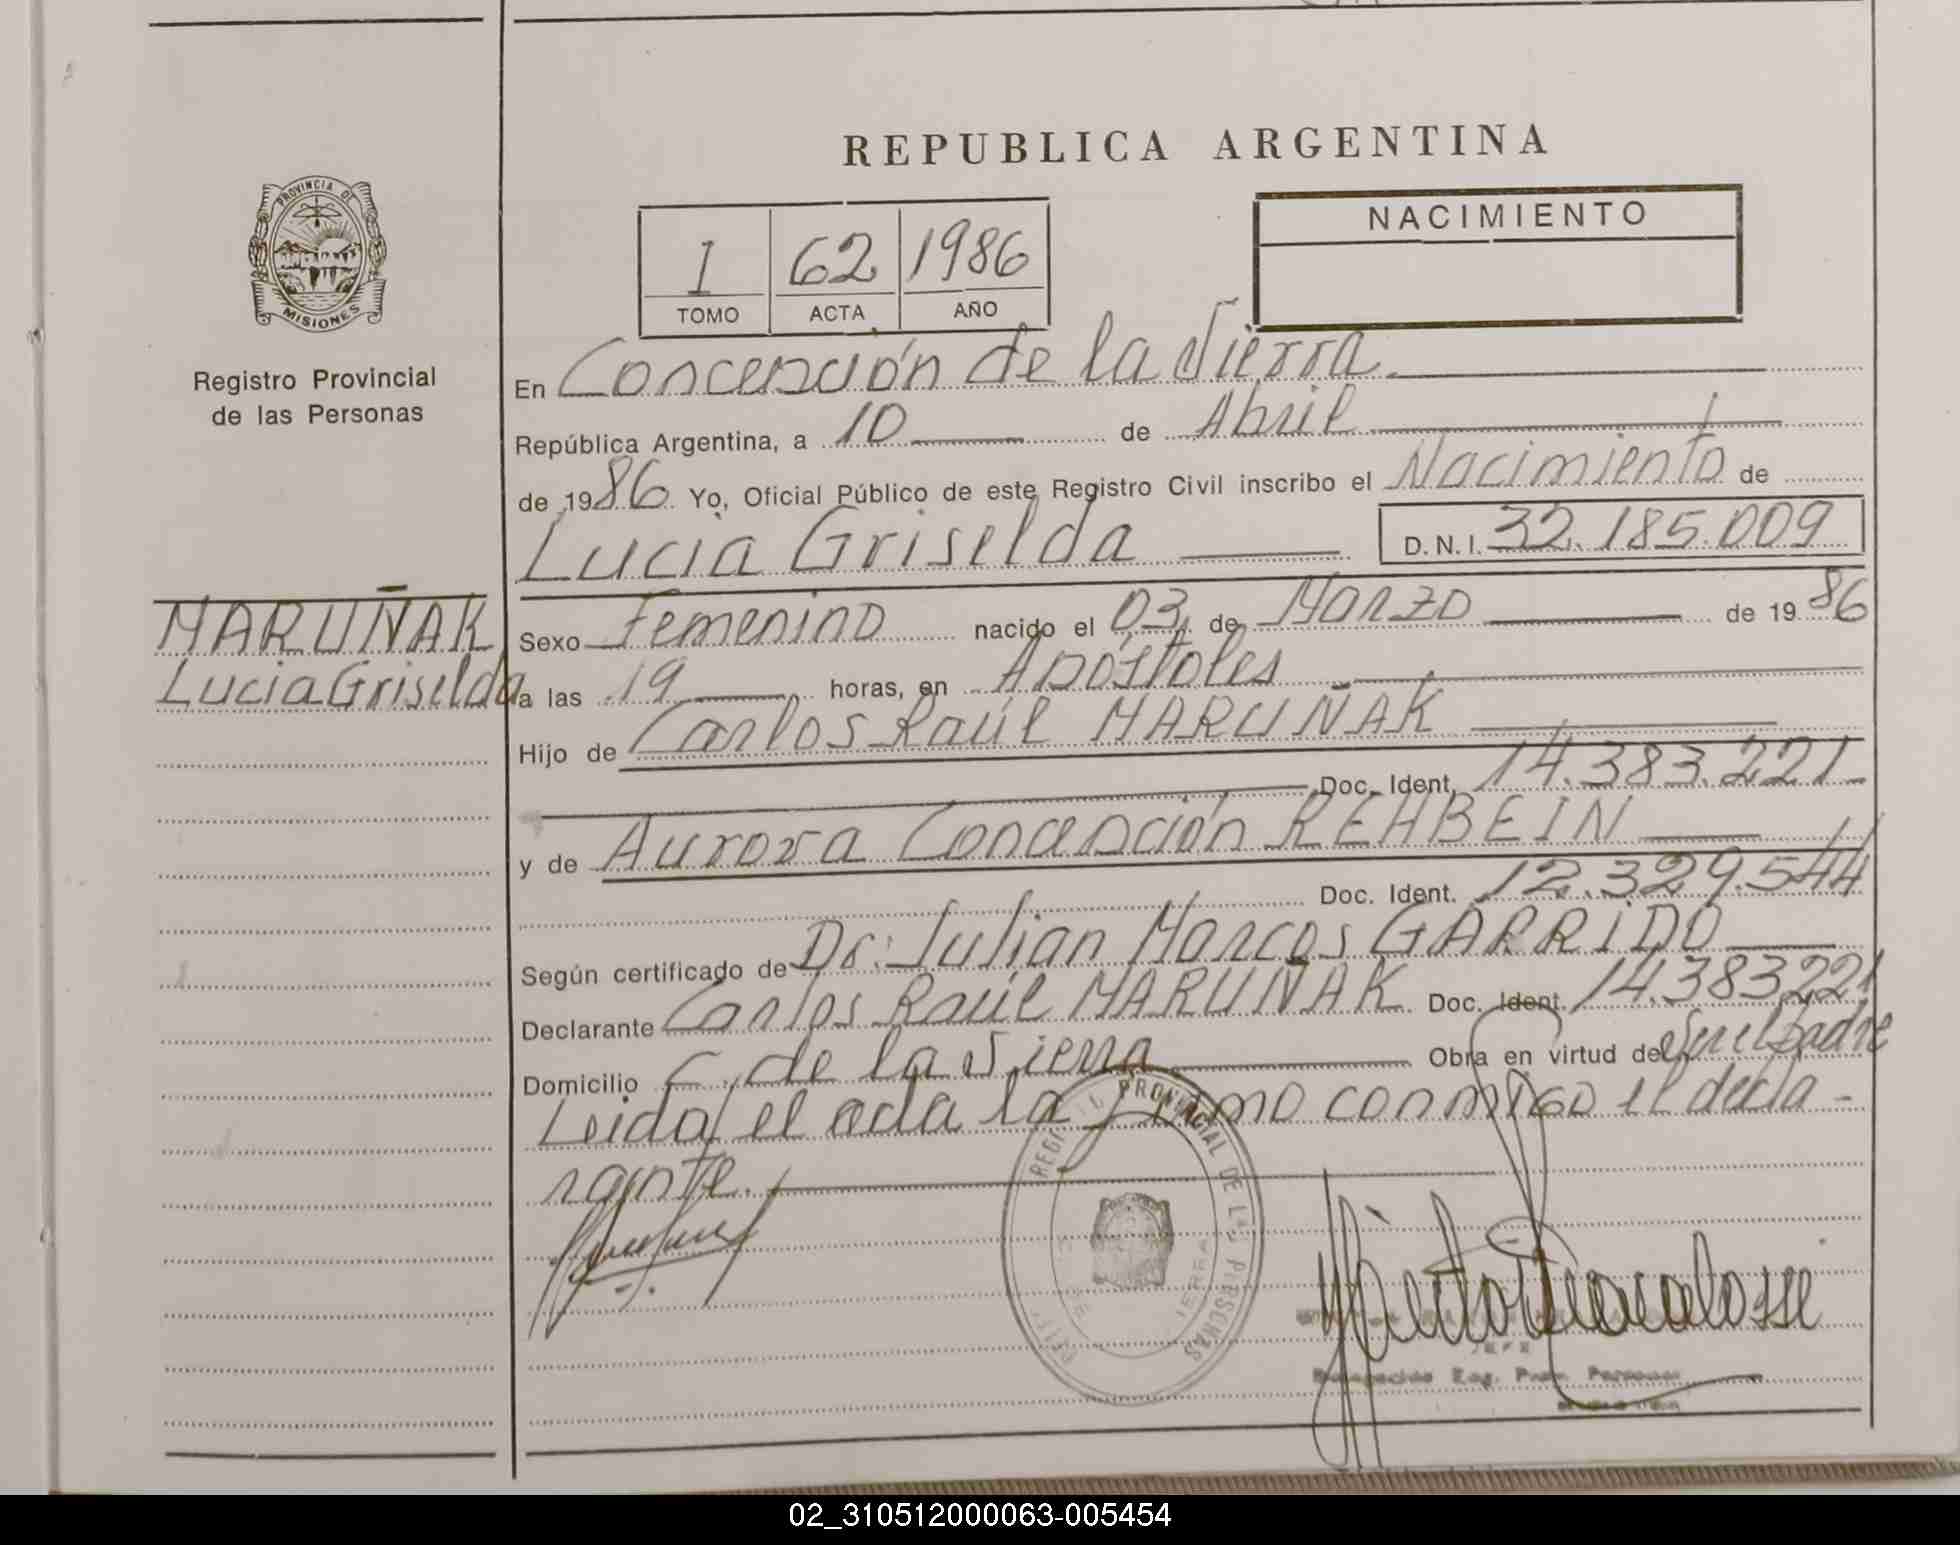 REPUBLICA ARGENTINA
PROVINCIA DE
MISIONES
Registro Provincial
de las Personas
1 62 1986
TOMO ACTA AÑO
NACIMIENTO
En Concepción de la Sierra
República Argentina, a 10 de Abril
de 1986 Yo, Oficial Público de este Registro Civil inscribo el Nacimiento de
Lucia Griselda D.N.I. 32.185.009
MARUÑAK
Lucia Griselda
Sexo Femenino nacido el 03 de Marzo de 1986
a las 19 horas, en Apóstoles
Hijo de Carlos Raúl MARUÑAK
Doc. Ident. 14.383.221
y de Aurora Concepción REHBEIN
Doc. Ident. 12.329.544
Según certificado de Dr: Julian Marcos GARRIDO
Declarante Carlos Raúl MARUÑAK Doc. Ident. 14.383.221
Domicilio C. de la Sierra Obra en virtud de Ser el padre
Leida el acta la firmo conmigo el decla-
rante.
REGISTRO PROVINCIAL DE LAS PERSONAS
JEFE
Delegación Reg. Prov. Personas
02_310512000063-005454